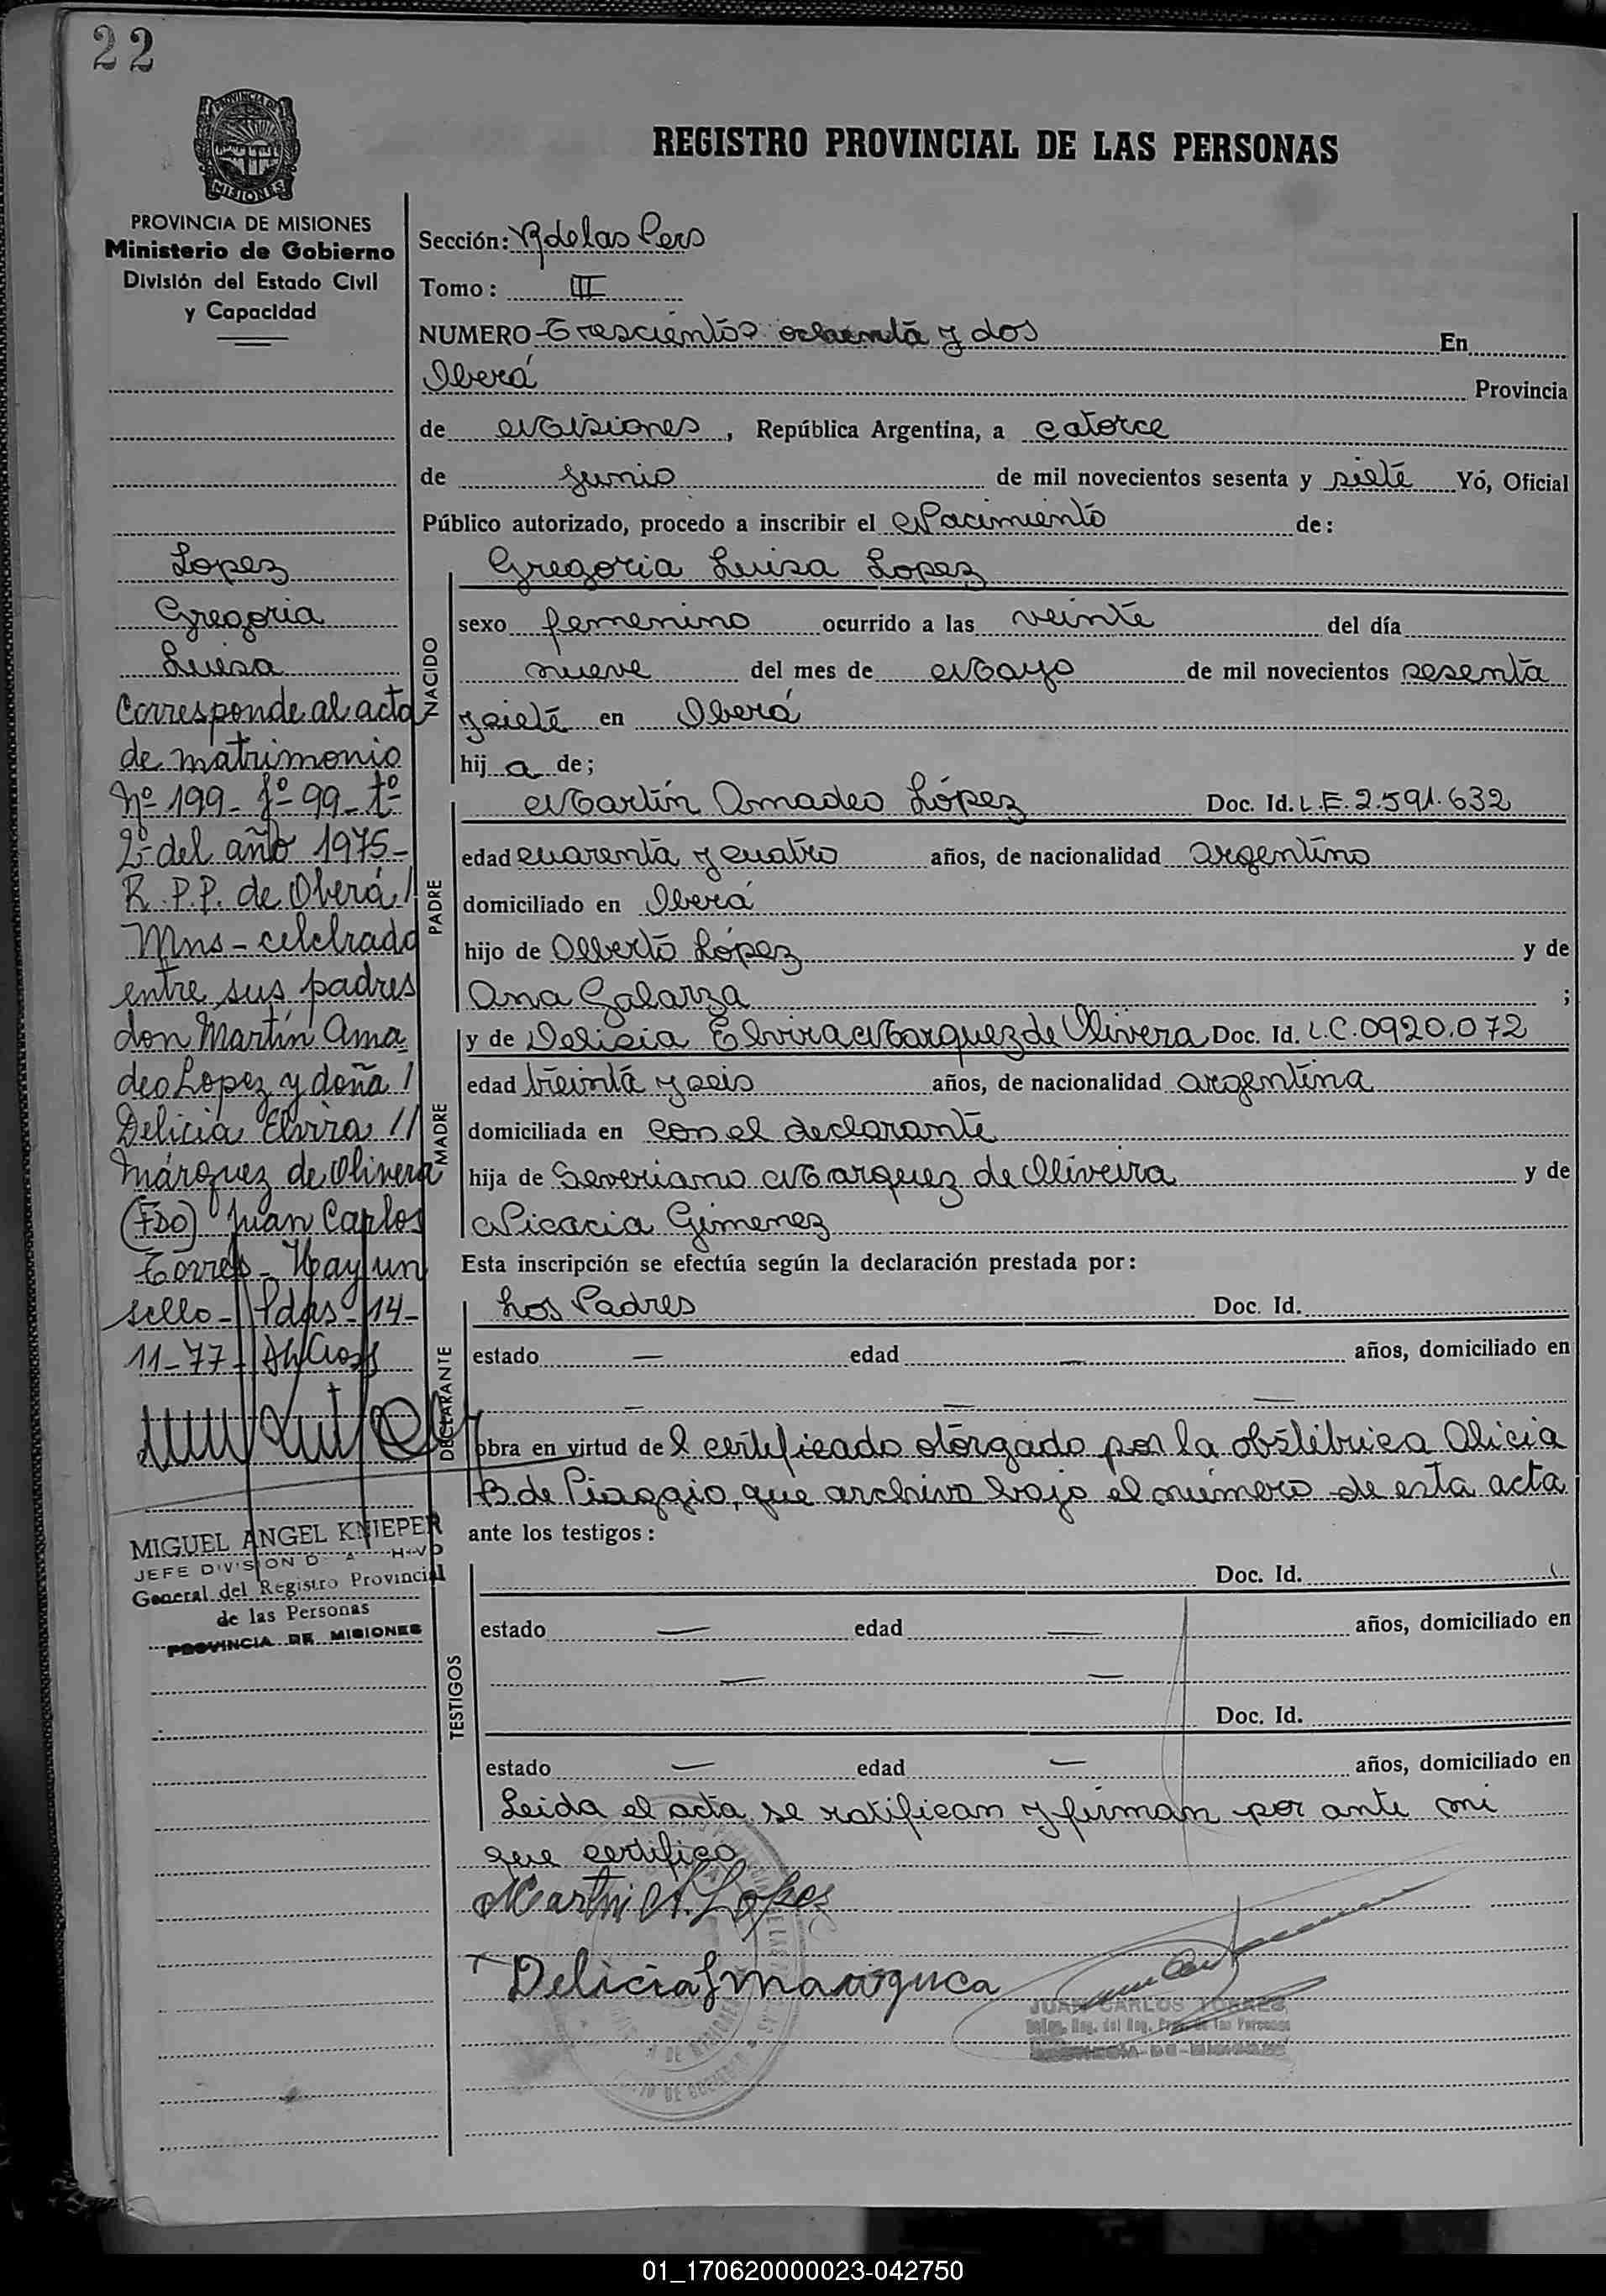 22
PROVINCIA DE
MISIONES
REGISTRO PROVINCIAL DE LAS PERSONAS
PROVINCIA DE MISIONES
Ministerio de Gobierno
División del Estado Civil
y Capacidad
Lopez
Gregoria
Luisa
Corresponde al acta
de matrimonio
Nº 199- fº- 99- tº
2º- del año 1975-
R. P.P. de Oberá/
Mns- celebrado
entre sus padres
don Martín Ama
deo Lopez y doña /
Delicia Elvira //
Márquez de Olivera
(FDO) Juan Carlos
Torres- Hay un
sello- Pdas- 14-
11-77-
MIGUEL ANGEL KNIEPER
JEFE DIVISION
General del Registro Provincial
de las Personas
PROVINCIA DE MISIONES
Sección: R de las Pers
Tomo: III
NUMERO Trescientos ochenta y dos En
Oberá Provincia
de Misiones, República Argentina, a catorce
de Junio de mil novecientos sesenta y siete Yó, Oficial
Público autorizado, procedo a inscribir el Nacimiento de:
NACIDO
Gregoria Luisa Lopez
sexo femenino ocurrido a las veinte del día
nueve del mes de Mayo de mil novecientos sesenta
y siete en Oberá
hij a de;
PADRE
Martín Amadeo López Doc. Id. L.E. 2.591.632
edad cuarenta y cuatro años, de nacionalidad argentino
domiciliado en Oberá
hijo de Alberto López y de
Ana Galarza ;
MADRE
y de Delicia Elvira Marquez de Olivera Doc. Id. L.C. 0920.072
edad treinta y seis años, de nacionalidad argentina
domiciliada en con el declarante
hija de Severiano Marquez de Oliveira y de
Nicacia Gimenez
Esta inscripción se efectúa según la declaración prestada por:
DECLARANTE
Los Padres Doc. Id.
estado — edad — años, domiciliado en
— — —
obra en virtud de l certificado otorgado por la obstétrica Alicia
B de Piaggio, que archivo bajo el número de esta acta
ante los testigos:
TESTIGOS
Doc. Id.
estado — edad — años, domiciliado en
— —
Doc. Id.
estado — edad — años, domiciliado en
Leida el acta se ratifican y firman por ante mi
que certifico
Martin A. Lopez
Delicia
JUAN CARLOS TORRES
01_170620000023-042750